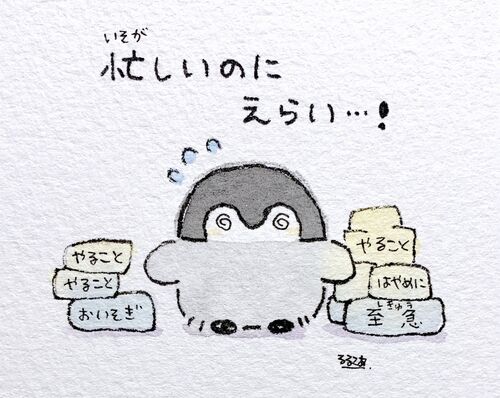 いそが
忙しいのに
えらい…!
やること
やること
おいそぎ
やること
はやめに
しきゅう
至急
るるてあ.